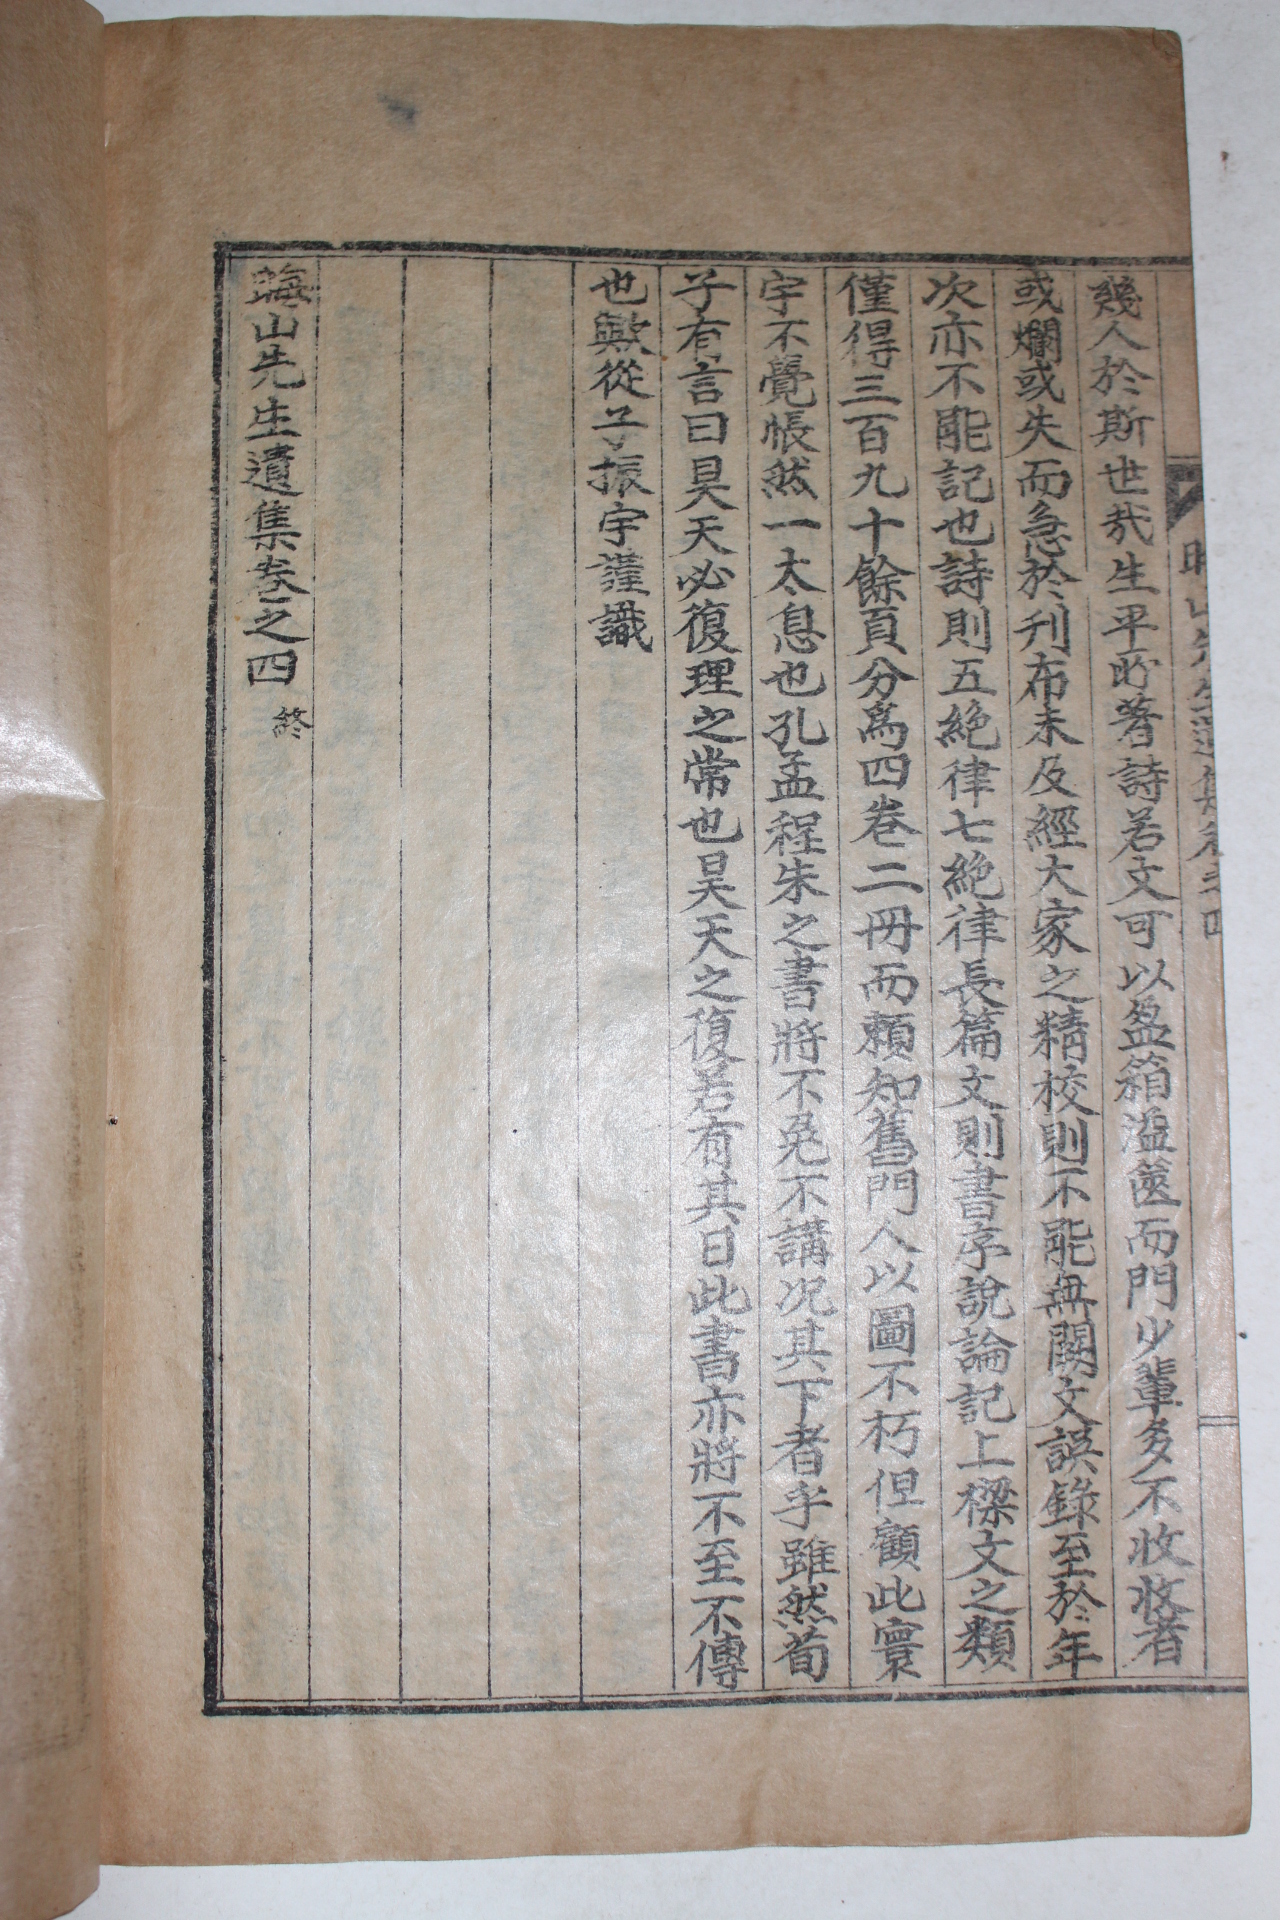 幾人於斯世哉生平所著詩若文可以盈箱溢篋而門少輩多不收收者
或爛或失而急於刊布未及經大家之精校則不能無闕文誤錄至於年
次亦不能記也詩則五絶律七絶律長篇文則書序說論記上樑文之類
僅得三百九十餘頁分爲四卷二冊而賴知舊門人以圖不朽但顧此寰
宇不覺悵然一太息也孔孟程朱之書將不免不講况其下者乎雖然荀
子有言曰昊天必復理之常也昊天之復若有其日此書亦將不至不傳
也歟從子振宇謹識
晦山先生遺集卷之四 終